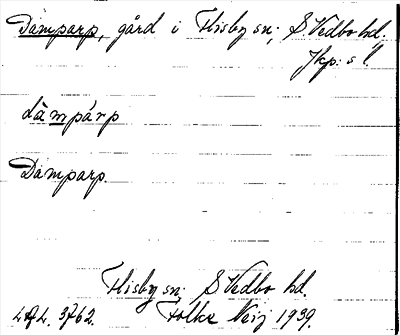 Dämparp, gård i Flisby sn; S. Vedbo hd.
Jkp: s l.
dä̀mpárp
Dämparp.
Flisby sn; S Vedbo hd.
3762. Folke Neij 1939.